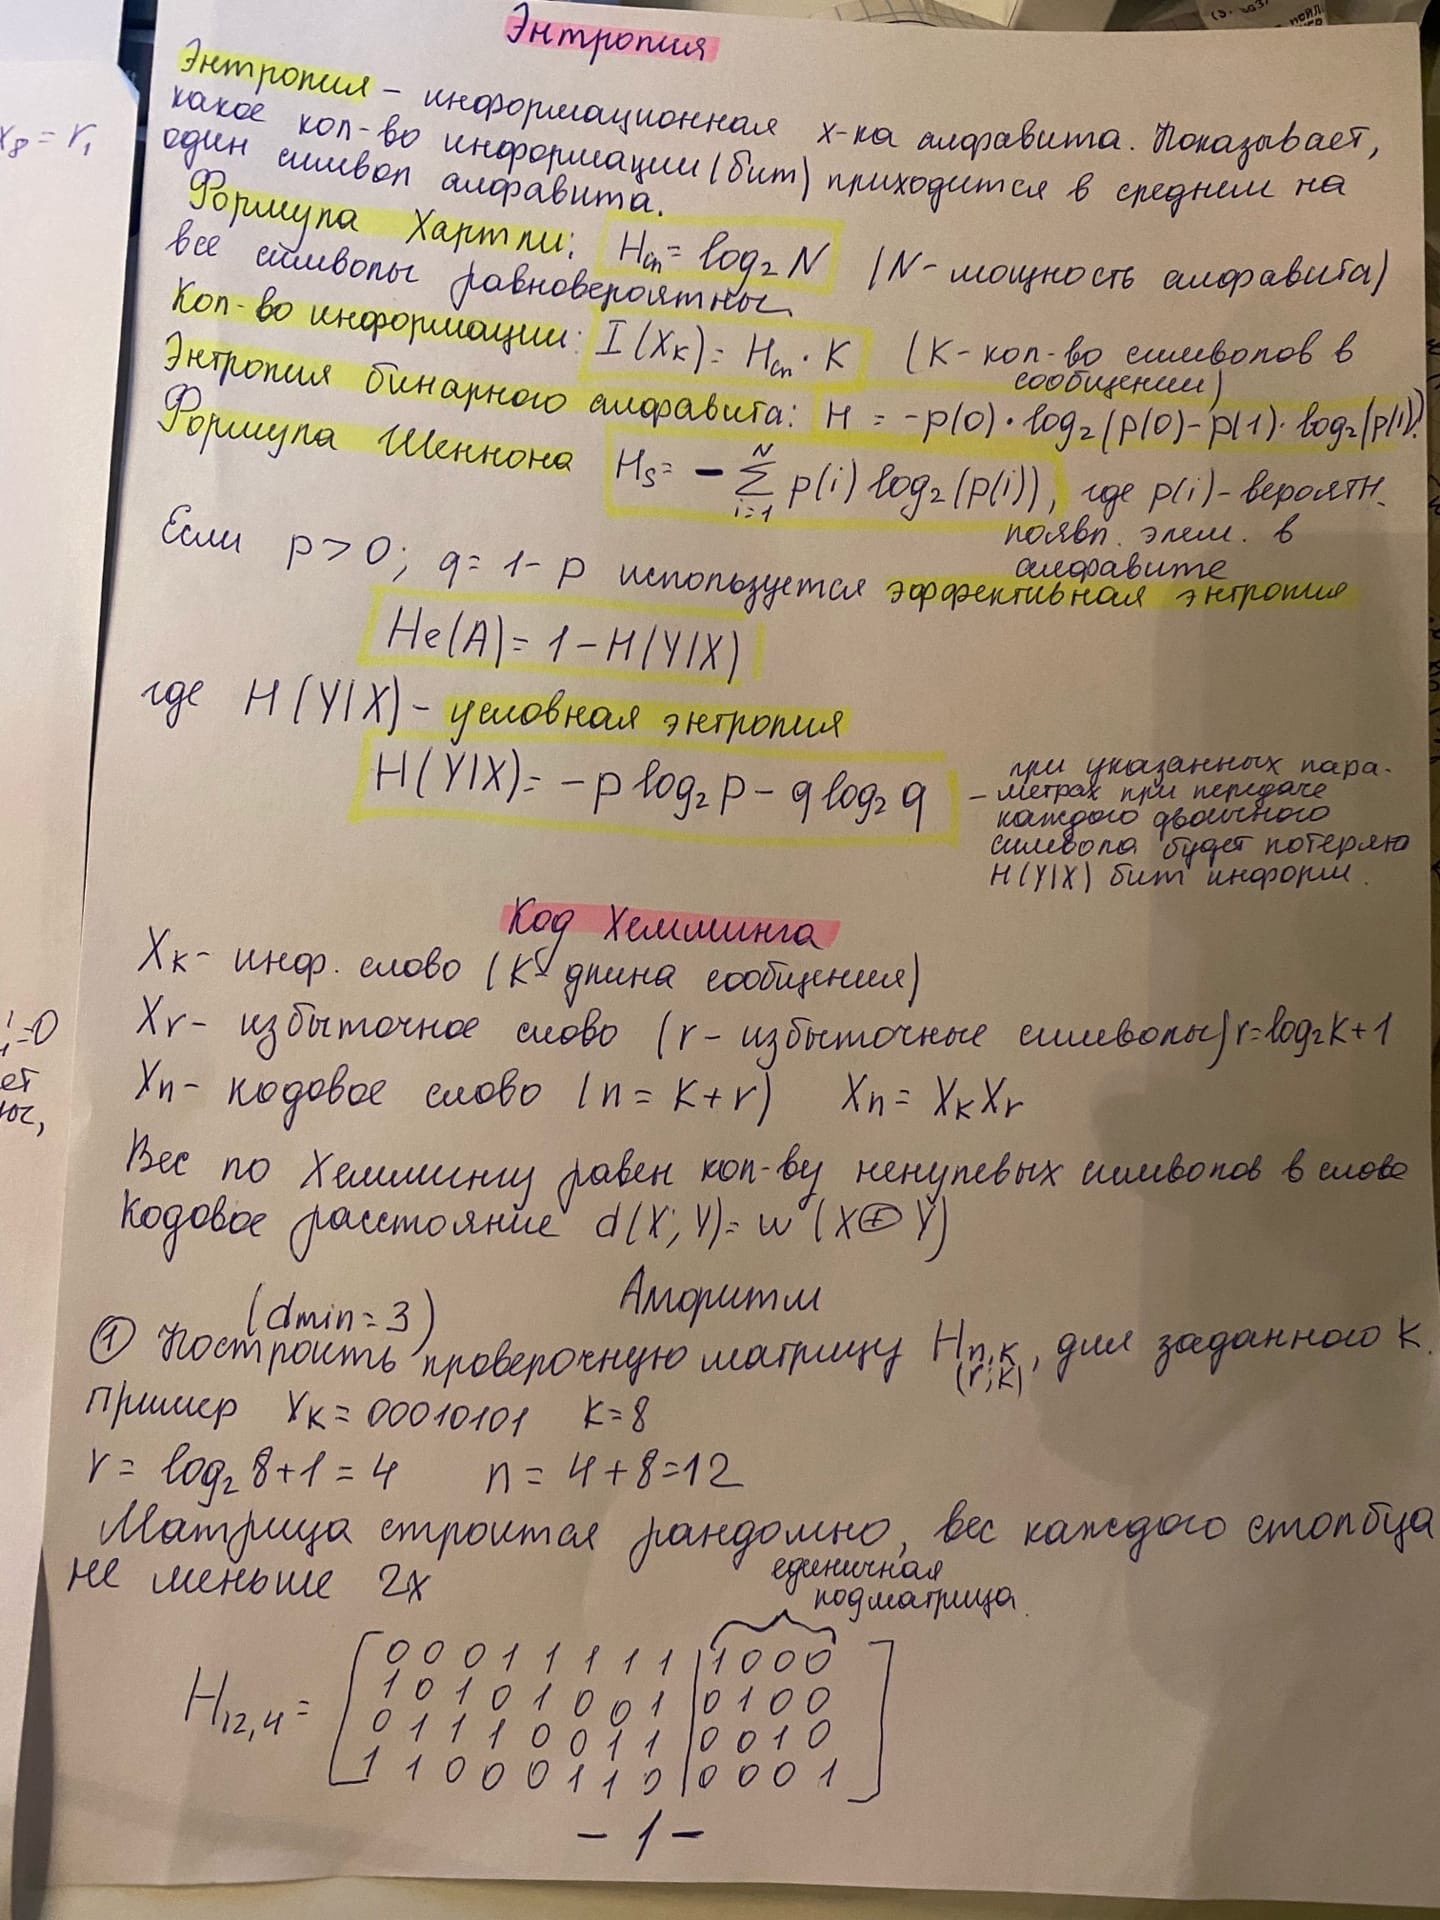 Энтропия
Энтропия – информационная х-ка алфавита. Показывает,
какое кол-во информации (бит) приходится в среднем на
один символ алфавита.
Формула Хартли: Hсп = log₂ N (N – мощность алфавита)
все символы равновероятны.
Кол-во информации: I(Xк) = Hсп · K (K – кол-во символов в
сообщении)
Энтропия бинарного алфавита: H = -p(0)·log₂(p(0) - p(1)·log₂(p(1)).
Формула Шеннона Hs = - Σ p(i) log₂(p(i)), где p(i) – вероятн.
N
i=1
появл. элем. в
алфавите
Если p > 0; q = 1 - p используется эффективная энтропия
He(A) = 1 - H(Y|X)
где H(Y|X) – условная энтропия
H(Y|X) = -p log₂ p - q log₂ q
при указанных пара-
– метрах при передаче
каждого двоичного
символа будет потеряно
H(Y|X) бит информ.
Код Хемминга
Xк – инф. слово (K – длина сообщения)
Xr – избыточное слово (r – избыточные символы) r = log₂k + 1
Xn – кодовое слово (n = k + r) Xn = XкXr
Вес по Хеммингу равен кол-ву ненулевых символов в слове
Кодовое расстояние d(X; Y) = w (X ⊕ Y)
Алгоритм
(dmin = 3)
① Построить проверочную матрицу Hn,k, для заданного K.
(r; k)
Пример Xк = 00010101 K = 8
r = log₂ 8 + 1 = 4 n = 4 + 8 = 12
Матрица строится рандомно, вес каждого столбца
не меньше 2х
единичная
подматрица.
0 0 0 1 1 1 1 1 | 1 0 0 0
1 0 1 0 1 0 0 1 | 0 1 0 0
H12,4 =
0 1 1 1 0 0 1 1 | 0 0 1 0
1 1 0 0 0 1 1 0 | 0 0 0 1
– 1 –
x8 = r1